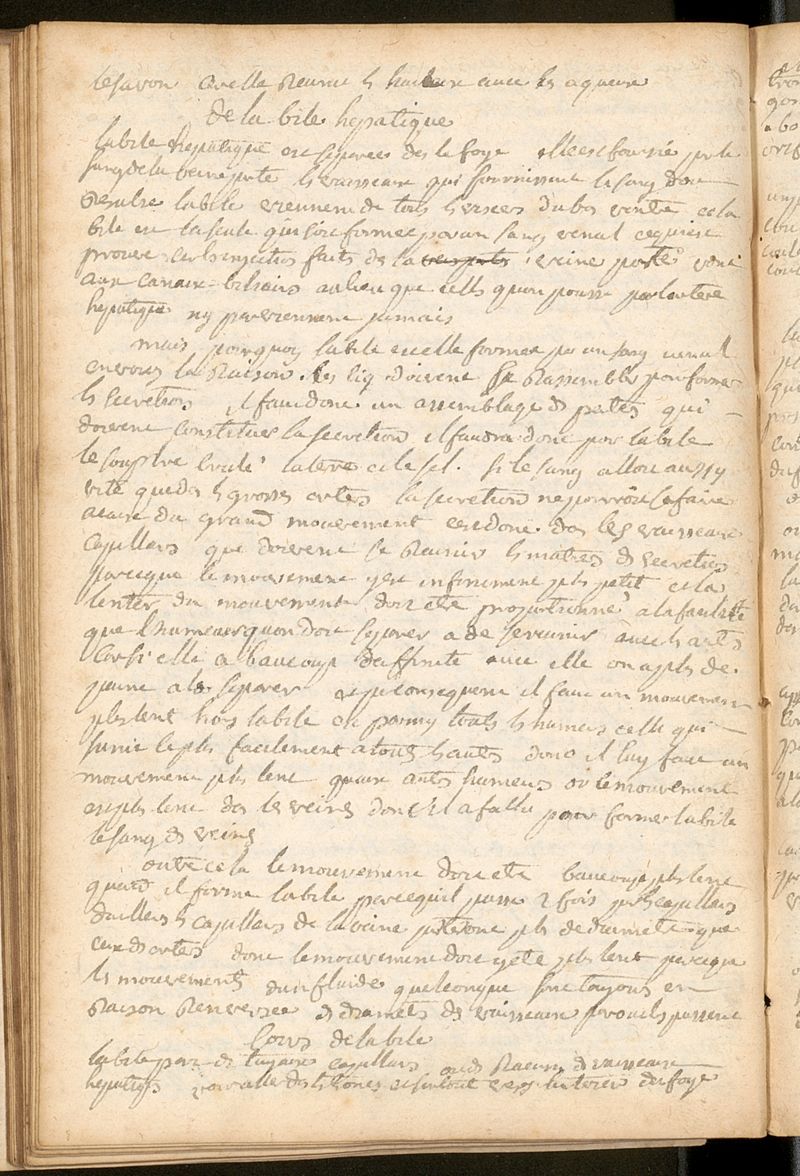 le savon et elle reunie les huileux avec les aqueux
de la bile hepatique
la bile hepatique est separee ds le foye elle est fournie par le
sang de la veine porte ls vaisseaux qui fournissent le sang dou
resulte la bile viennent de touts ls visceres du bas ventre et la
bile est la seule qui soit formee par un sang veneal ce qui est
prouvé les injections faits de la veine porte vont
aux canaux biliairs au lieu que cells quon pousse par lartere
hepatique ny parviennent jamais
mais pourquoy la bile est elle formee par un sang veneal
en voicy la raison. les liq doivent se rassembler pour former
ls secretions il faut donc un assemblage ds partes qui
doivent constituer la secretion il faudra donc pour la bile
le souphre la terre et le sel. si le sang alloit aussy
vite que ds ls grosses arteres la secretion ne pourroit se faire
a cause du grand mouvement cest donc ds les vaisseaux
capillairs que doivent se reunir ls matieres ds secretions
parceque le mouvement y est infiniment pls petit et la
lenteur du mouvement doit etre proportionné a la facilité
que lhumeur quon doit separer a de se reunir avec ls auts
car si elle a baucoup daffinité avec elle on a pls de
peine a la separer et par consequent il faut un mouvement
pls lent hors la bile est parmy touts ls humeurs celle qui
sunie le pls facilement a touts ls auts donc il luy faut un
mouvement pls lent quaux auts humeurs or le mouvement
est pls lent ds les veines donc il a fallu pour former la bile
le sang ds veines
outre cela le mouvement doit etre baucoup pls lent
quand il forme la bile parcequil passe 2 fois par ls capillairs
dailleurs ls capillairs de la veine porte ont pls de diametre que
ceux ds arteres donc le mouvement doit y etre pls lent parceque
ls mouvements dun fluide quelconque sont toujours en
raison renversee ds diametrs ds vaisseaux par ou ils passent
cours de la bile
la bile part ds tuyaux capillairs
hepatiqs du foye